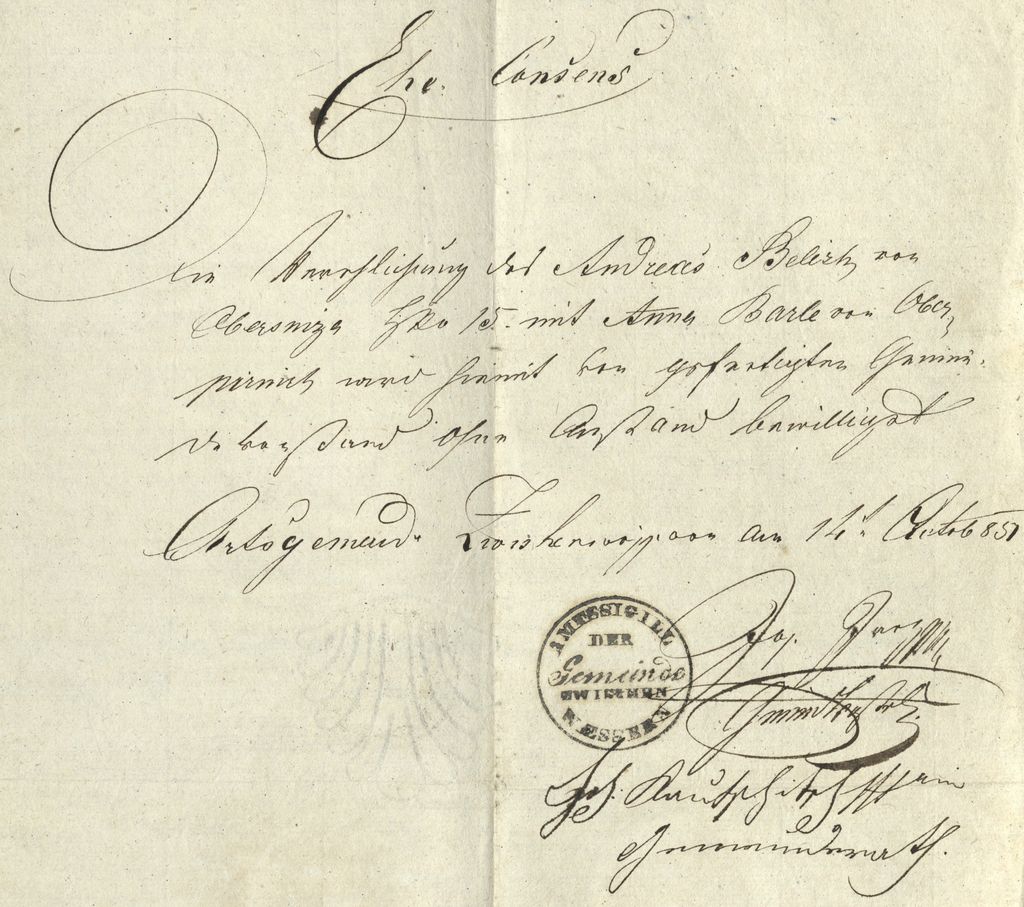 Ehe. Consens
Die Verehlichung des Andreas Belich von
Obersniza HNo 15. mit Anna Barle von Ober„
pirnich wird hiemit von gefertigten Gemein„
devorstand ohne Anstand bewilliget
Ortsgemeinde Zwischenwässern am 14t. Octob 851
AMTSSIGILL
DER
Gemeinde
ZWISCHEN
WÄSSERN
Jos.
Gemeindevorsteher
Joh. Kautschitsch
Gemeinderath.